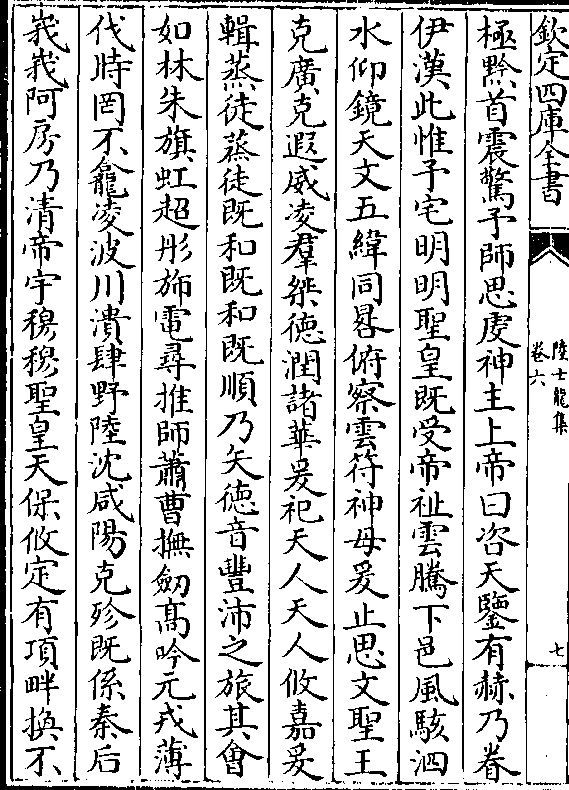 欽定四庫全書
陸士龍集
卷六
七
極黔首震驚予師思虔神主上帝曰咨天鑒有赫乃眷
伊漢此惟予宅明明聖皇既受帝祉雲騰下邑風駭泗
水仰鏡天文五緯同晷俯察雲符神母爰止思文聖王
克廣克遐威凌羣桀徳潤諸華爰祀天人天人攸嘉爰
輯蒸徒蒸徒既和既和既順乃矢徳音豐沛之旅其會
如林朱旗虹超彤斾電尋推師蕭曹撫劒髙吟元戎薄
伐時罔不龕凌波川潰肆野陸沈咸陽克殄既係秦后
峩峩阿房乃清帝宇穆穆聖皇天保攸定有項畔換不